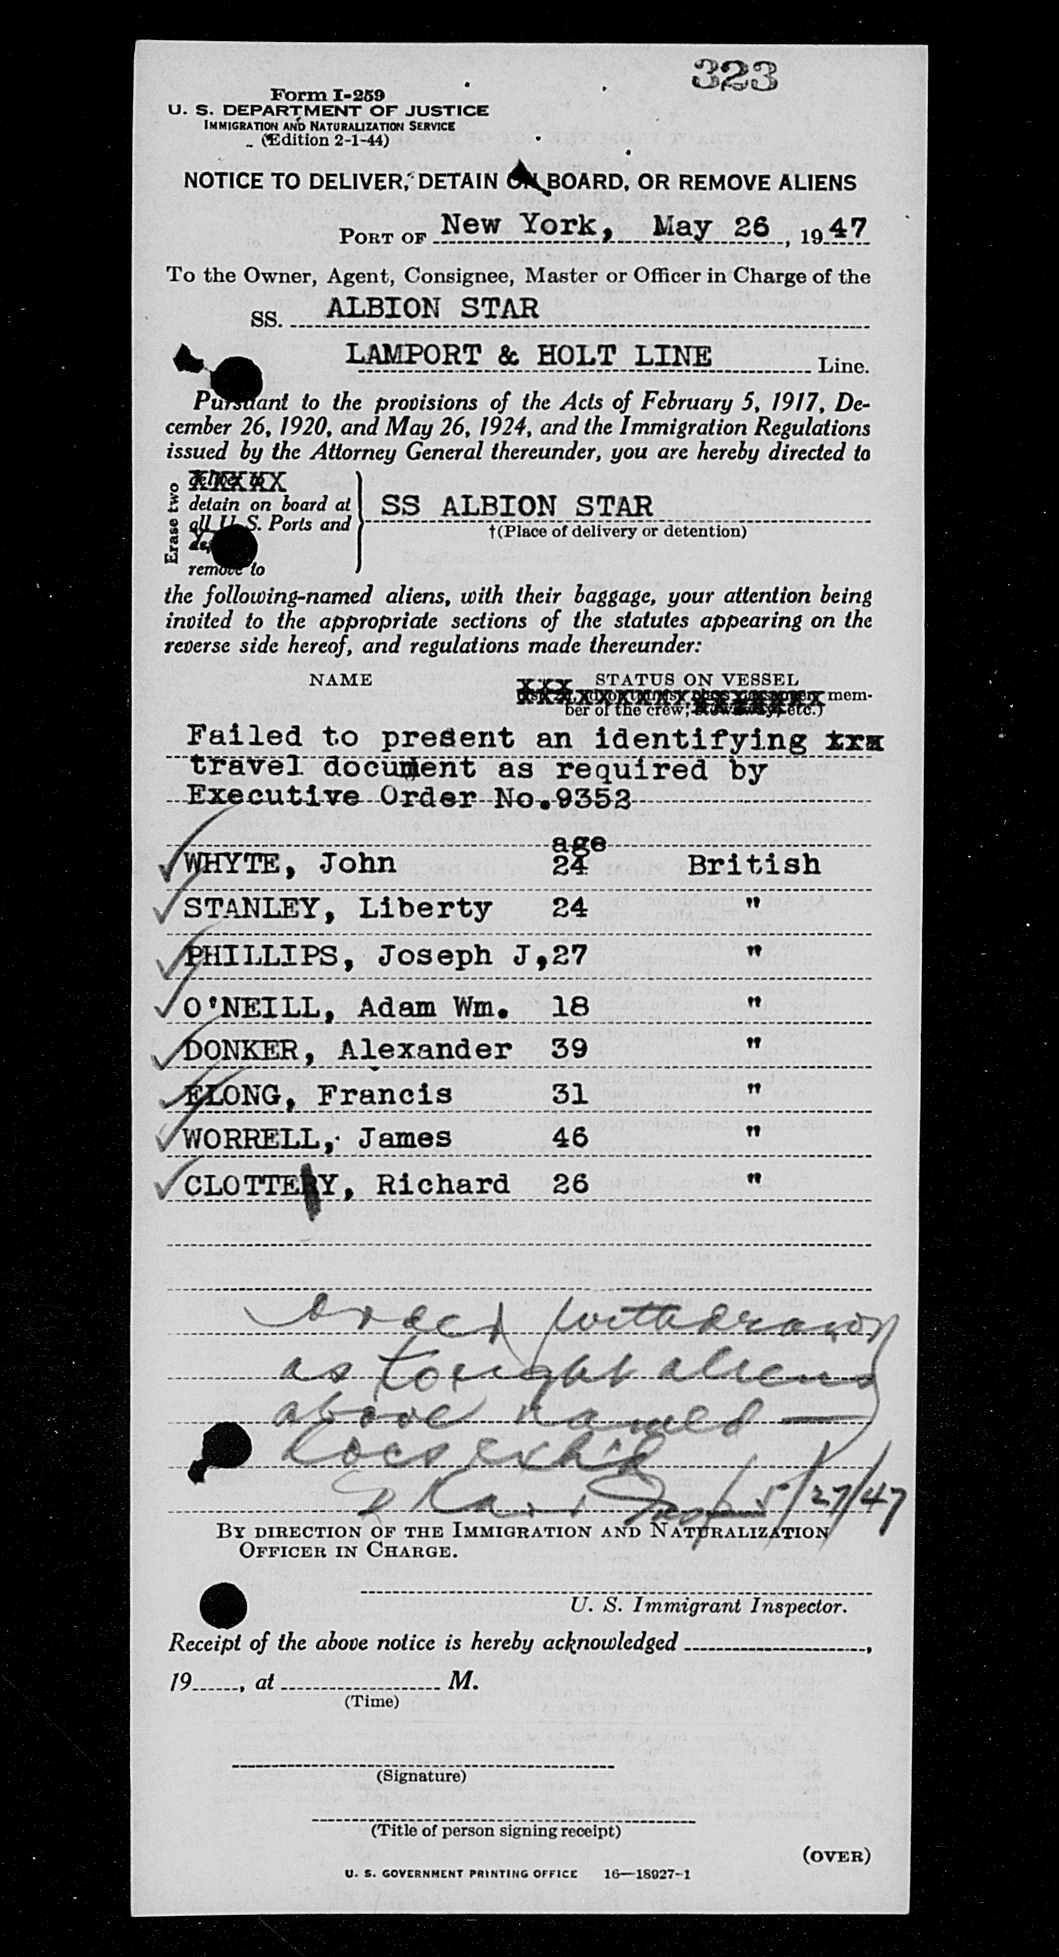 323
Form I-259
U. S. DEPARTMENT OF JUSTICE
IMMIGRATION AND NATURALIZATION SERVICE
(Edition 2-1-44)
NOTICE TO DELIVER, DETAIN ON BOARD, OR REMOVE ALIENS
PORT OF New York, May 26, 1947
To the Owner, Agent, Consignee, Master or Officer in Charge of the
SS. ALBION STAR
LAMPORT & HOLT LINE Line.
Pursuant to the provisions of the Acts of February 5, 1917, De-
cember 26, 1920, and May 26, 1924, and the Immigration Regulations
issued by the Attorney General thereunder, you are hereby directed to
Erase two
detain on board at
all U. S. Ports and
remove to
SS ALBION STAR
†(Place of delivery or detention)
the following-named aliens, with their baggage, your attention being
invited to the appropriate sections of the statutes appearing on the
reverse side hereof, and regulations made thereunder:
NAME STATUS ON VESSEL
mem-
ber of the crew; etc.)
Failed to present an identifying trx
travel document as required by
Executive Order No.9352
age
WHYTE, John 24 British
STANLEY, Liberty 24 "
PHILLIPS, Joseph J,27 "
O'NEILL, Adam Wm. 18 "
DONKER, Alexander 39 "
ELONG, Francis 31 "
WORRELL, James 46 "
CLOTTEY, Richard 26 "
order withdrawn
as to eight aliens
above named —
docs exhib
Insp 5/27/47
BY DIRECTION OF THE IMMIGRATION AND NATURALIZATION
OFFICER IN CHARGE.
U. S. Immigrant Inspector.
Receipt of the above notice is hereby acknowledged ,
19 , at M.
(Time)
(Signature)
(Title of person signing receipt)
(OVER)
U. S. GOVERNMENT PRINTING OFFICE 16—18927-1